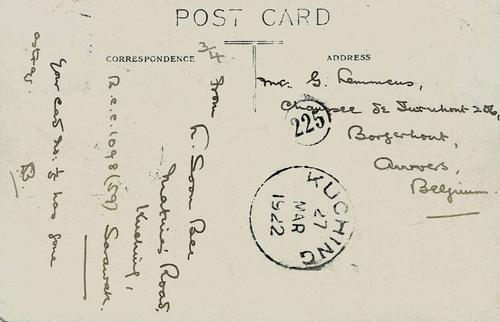 POST CARD
CORRESPONDENCE
3/4
From
K. Soon Bee
Mathies Road,
Kuching,
Sarawak.
R.c.c. 1098 (59)
Your card No. 1/3 has gone
astray.
ADDRESS
Mr. G. Lemmens,
Chaussee de Turnhout 226,
Borgerhout,
Anvers,
Belgium
225
KUCHING
27
MAR
1922